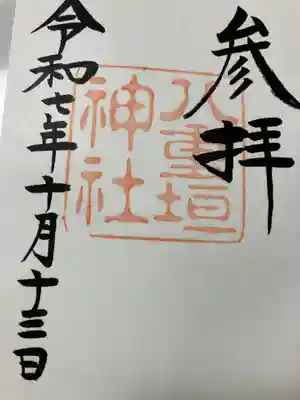 参拝
八重垣
神社
令和七年十月十三日